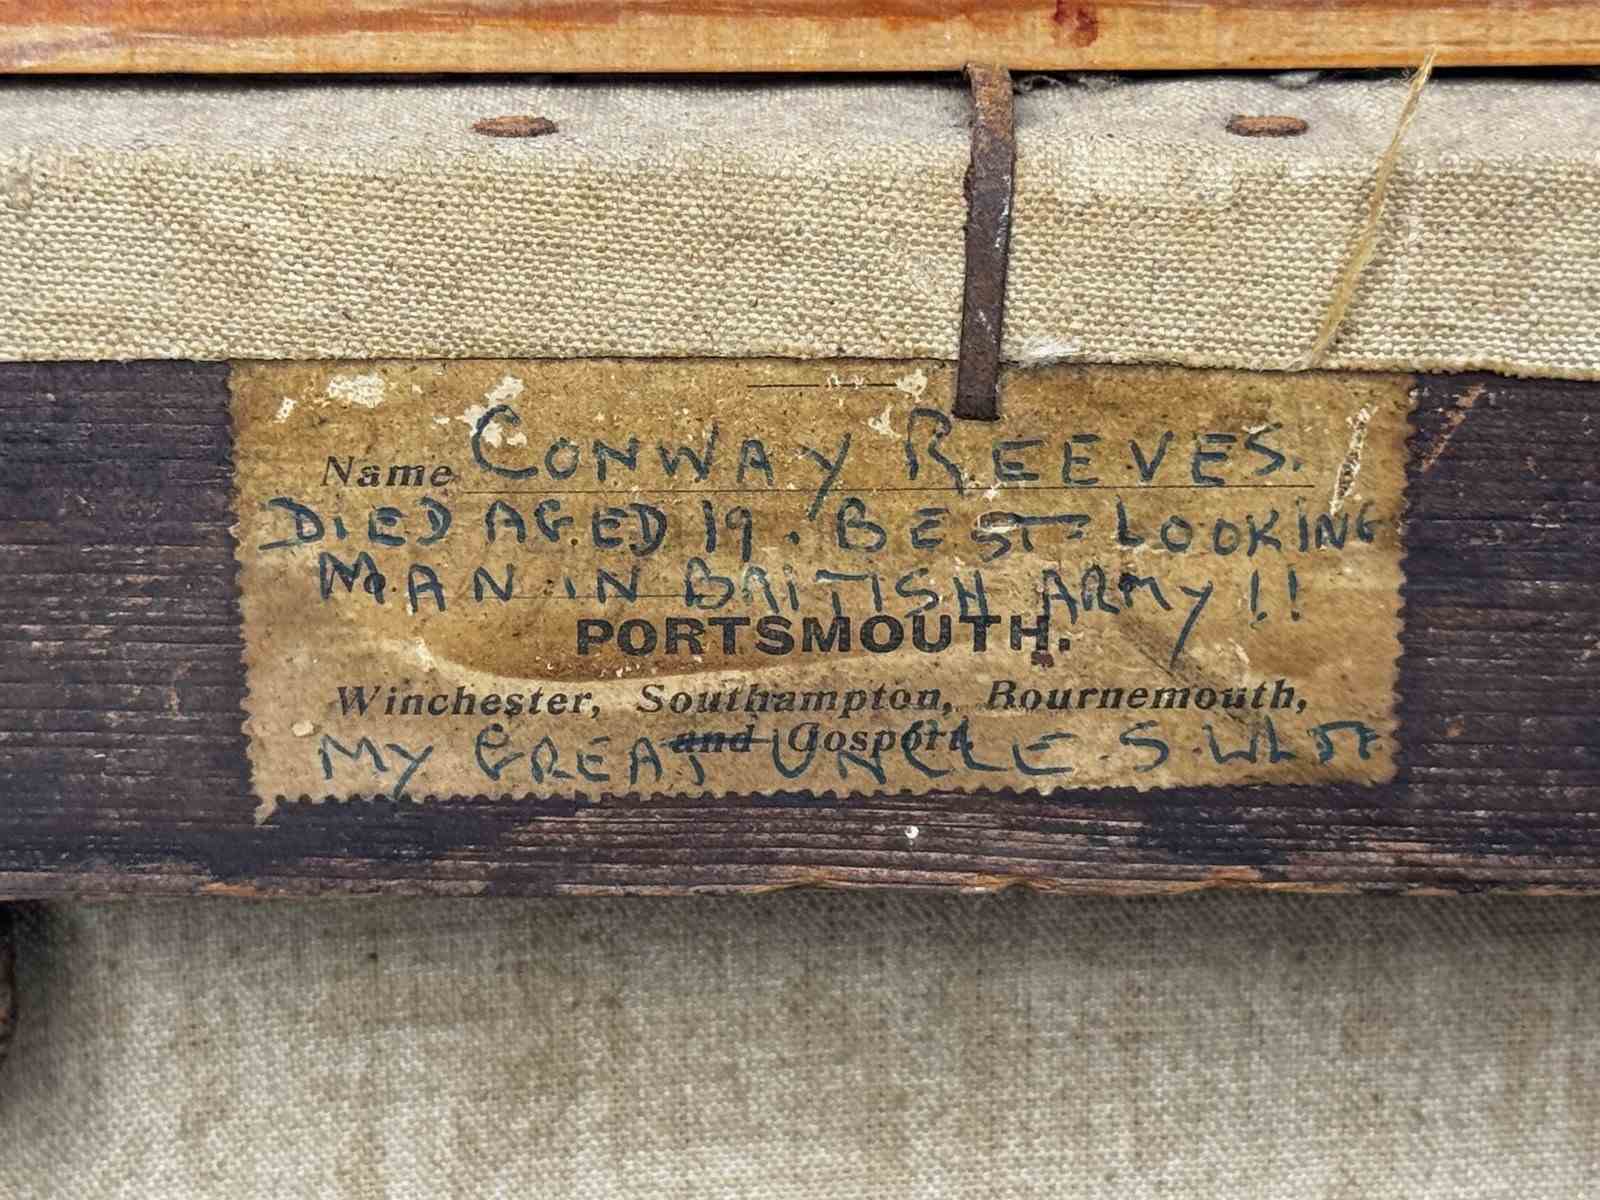 Name CONWAY REEVES.
DIED AGED 19. BEST-LOOKING
MAN IN BRITISH ARMY!!
PORTSMOUTH.
Winchester, Southampton, Bournemouth,
and Gosport
MY GREAT UNCLE